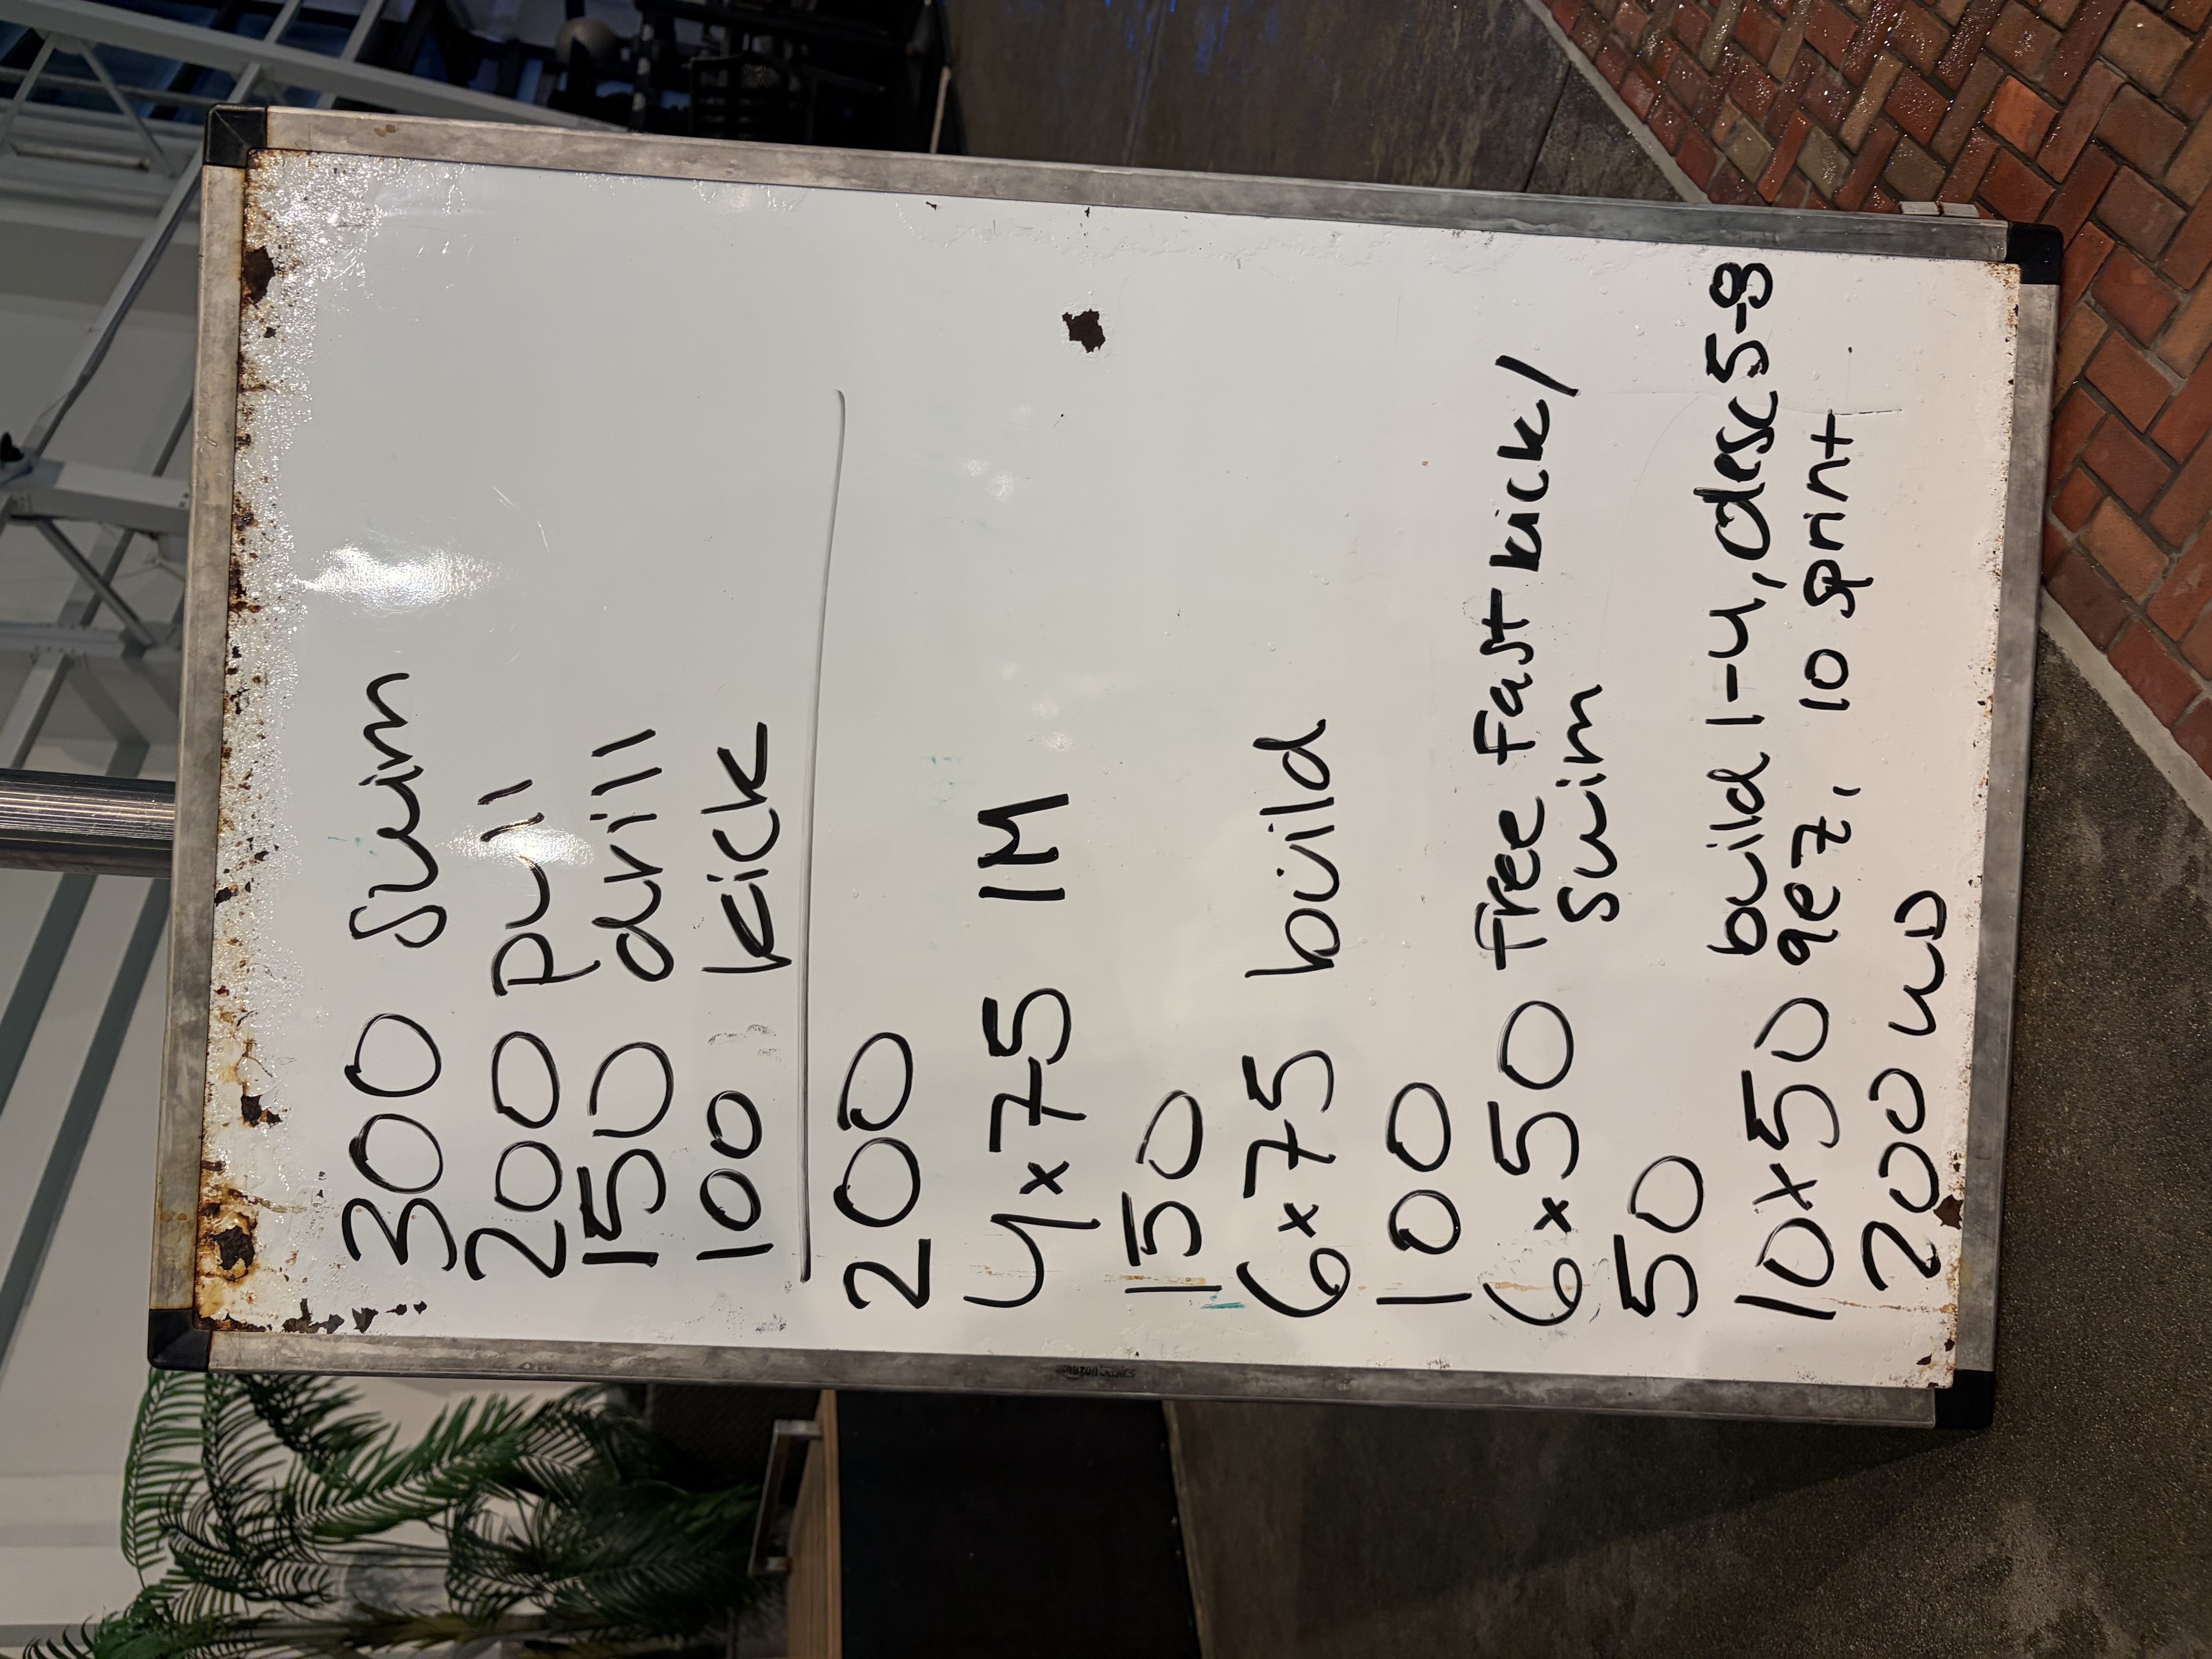 300 swim
200 pull
150 drill
100 kick
200
4x75 IM
150
6x75 build
100
6x50 free fast kick/
swim
50
10x50 build 1-4, desc 5-8
9 ez, 10 sprint
200 WD
amazon basics